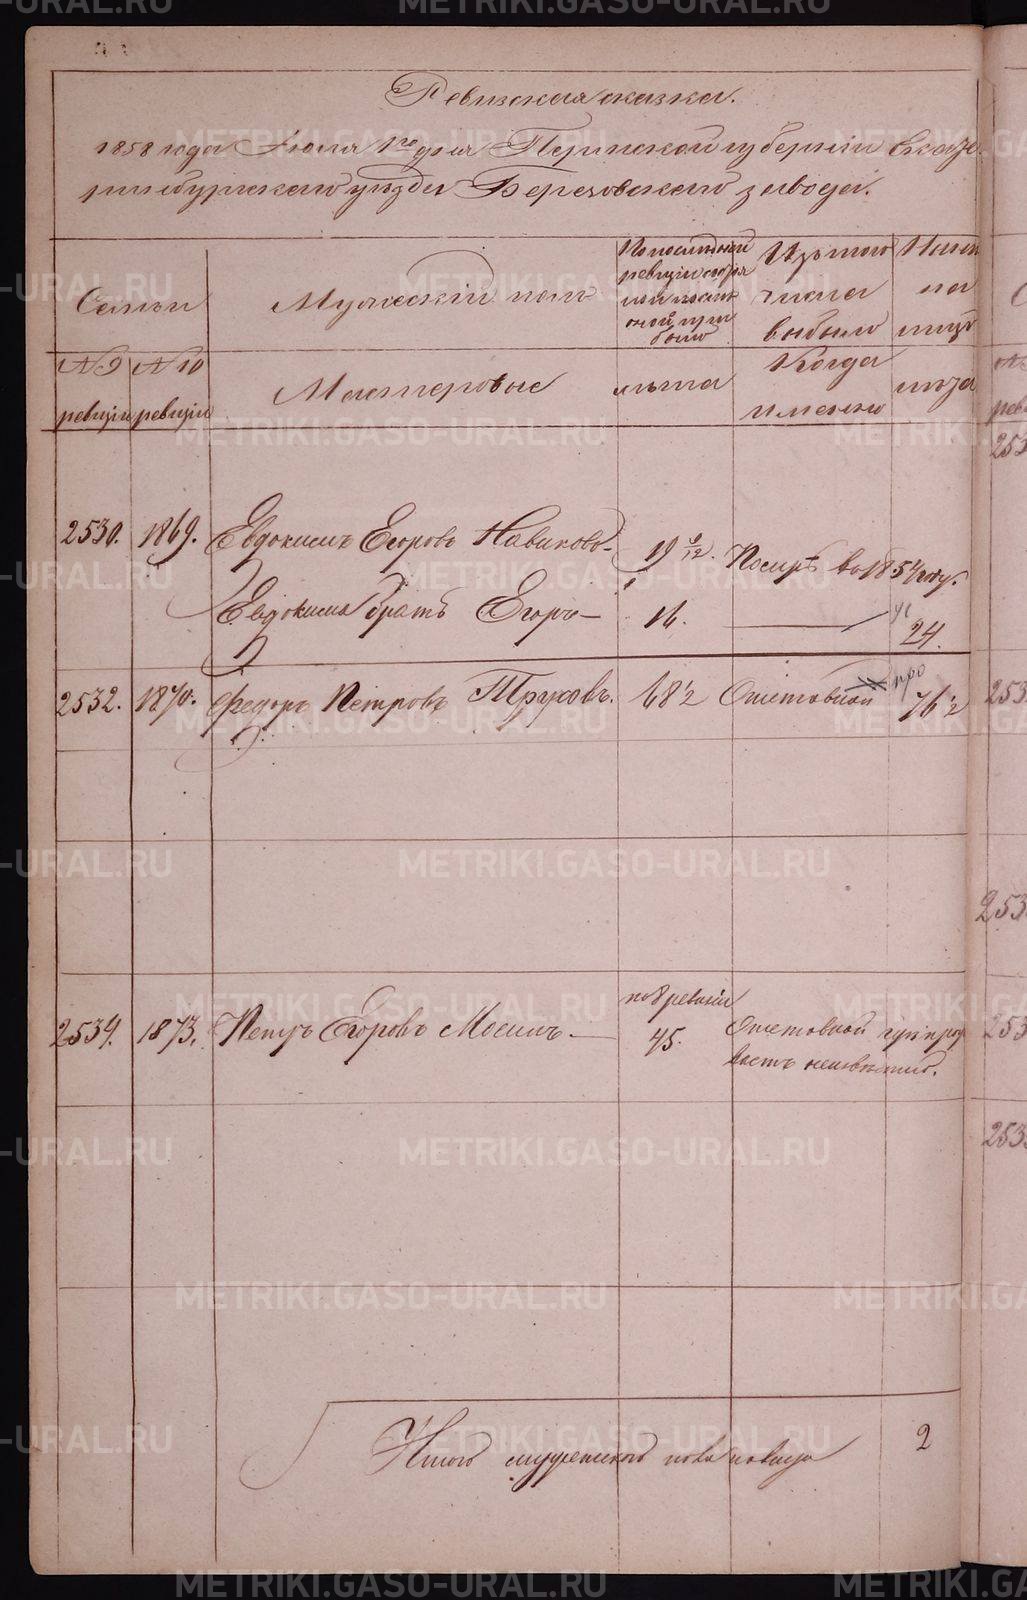 Ревизская сказка.
1858 года Июня 1го дня Пермской губернии Екате-
ринбургского уезда Березовского завода.
Семьи
Мужеский полъ
По последней
ревизии
было
Изъ того
числа
выбыло
Ныне
на
лицо
№ 9
ревизии
№ 10
ревизии
Мастеровые
лета
Когда
именно
лета
2530. 1869. Евдокимъ Егоровъ Новиковъ 19 Помръ въ 1854 году.
Евдокима братъ Егоръ — 16. — 24.
2532. 1870. Федоръ Петровъ Труховъ. 68½ Отставной про 76½
2534. 1873. Петръ Егоровъ Мосинъ —
по 8 ревизии
45.
Отставной
неизвестно.
Итого мужеского пола налицо 2
253
METRIKI.GASO-URAL.RU